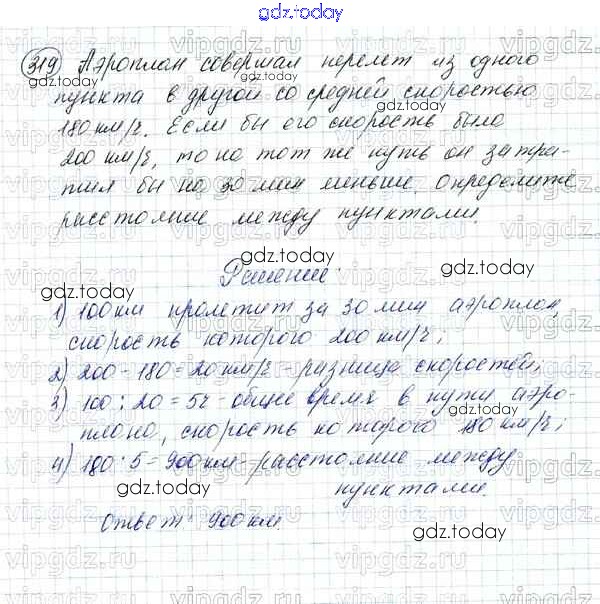 gdz.today
319) Аэроплан совершал перелет из одного
пункта в другой со средней скоростью
180 км/ч. Если бы его скорость была
200 км/ч, то на тот же путь он затра-
тил бы на 30 мин меньше. Определите
расстояние между пунктами.
Решение:
1) 100 км пролетит за 30 мин аэроплан,
скорость которого 200 км/ч;
2) 200 - 180 = 20 км/ч - разница скоростей;
3) 100 : 20 = 5ч - общее время в пути аэро-
плана, скорость которого 180 км/ч;
4) 180 · 5 = 900 км расстояние между
пунктами.
Ответ: 900 км